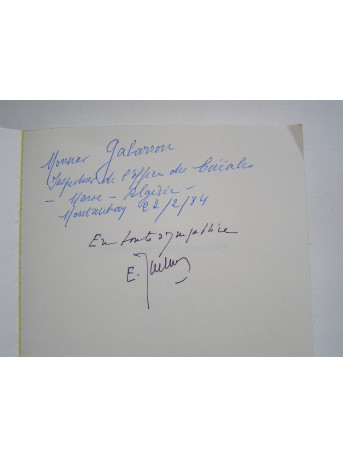 Monsieur Gabarrou
Inspecteur de l'Office des Céréales
- Maroc - Algérie -
Montauban 22/2/84
En toute sympathie
E.